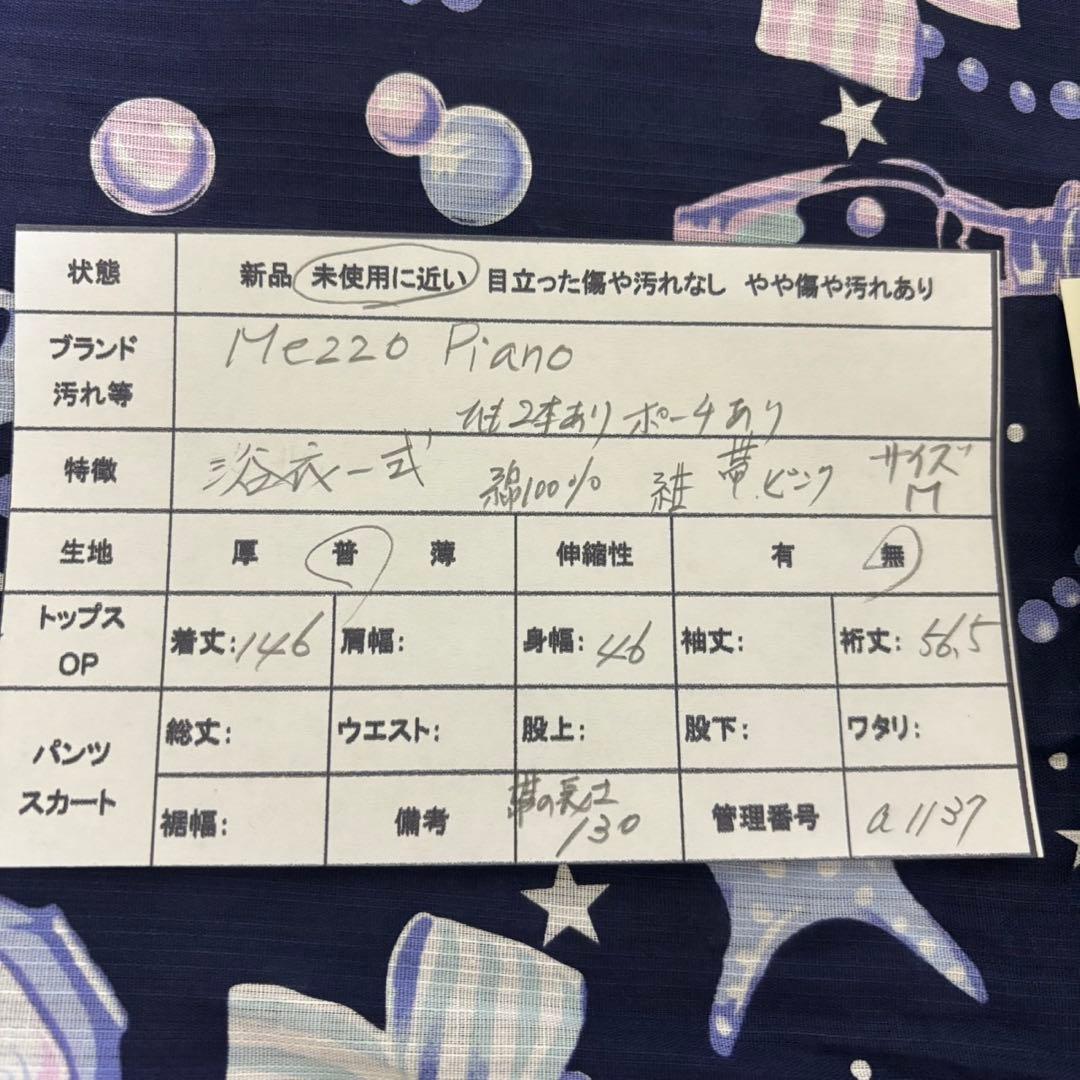 状態 新品 未使用に近い 目立った傷や汚れなし やや傷や汚れあり
ブランド Mezzo Piano
汚れ等 ひも2本あり ポーチあり
特徴 浴衣一式 綿100% 紺 帯.ピンク サイズM
生地 厚 普 薄 伸縮性 有 無
トップス
OP 着丈:146 肩幅: 身幅:46 袖丈: 裄丈:56.5
パンツ
スカート 総丈: ウエスト: 股上: 股下: ワタリ:
裾幅: 備考 帯の長さ130 管理番号 a1137